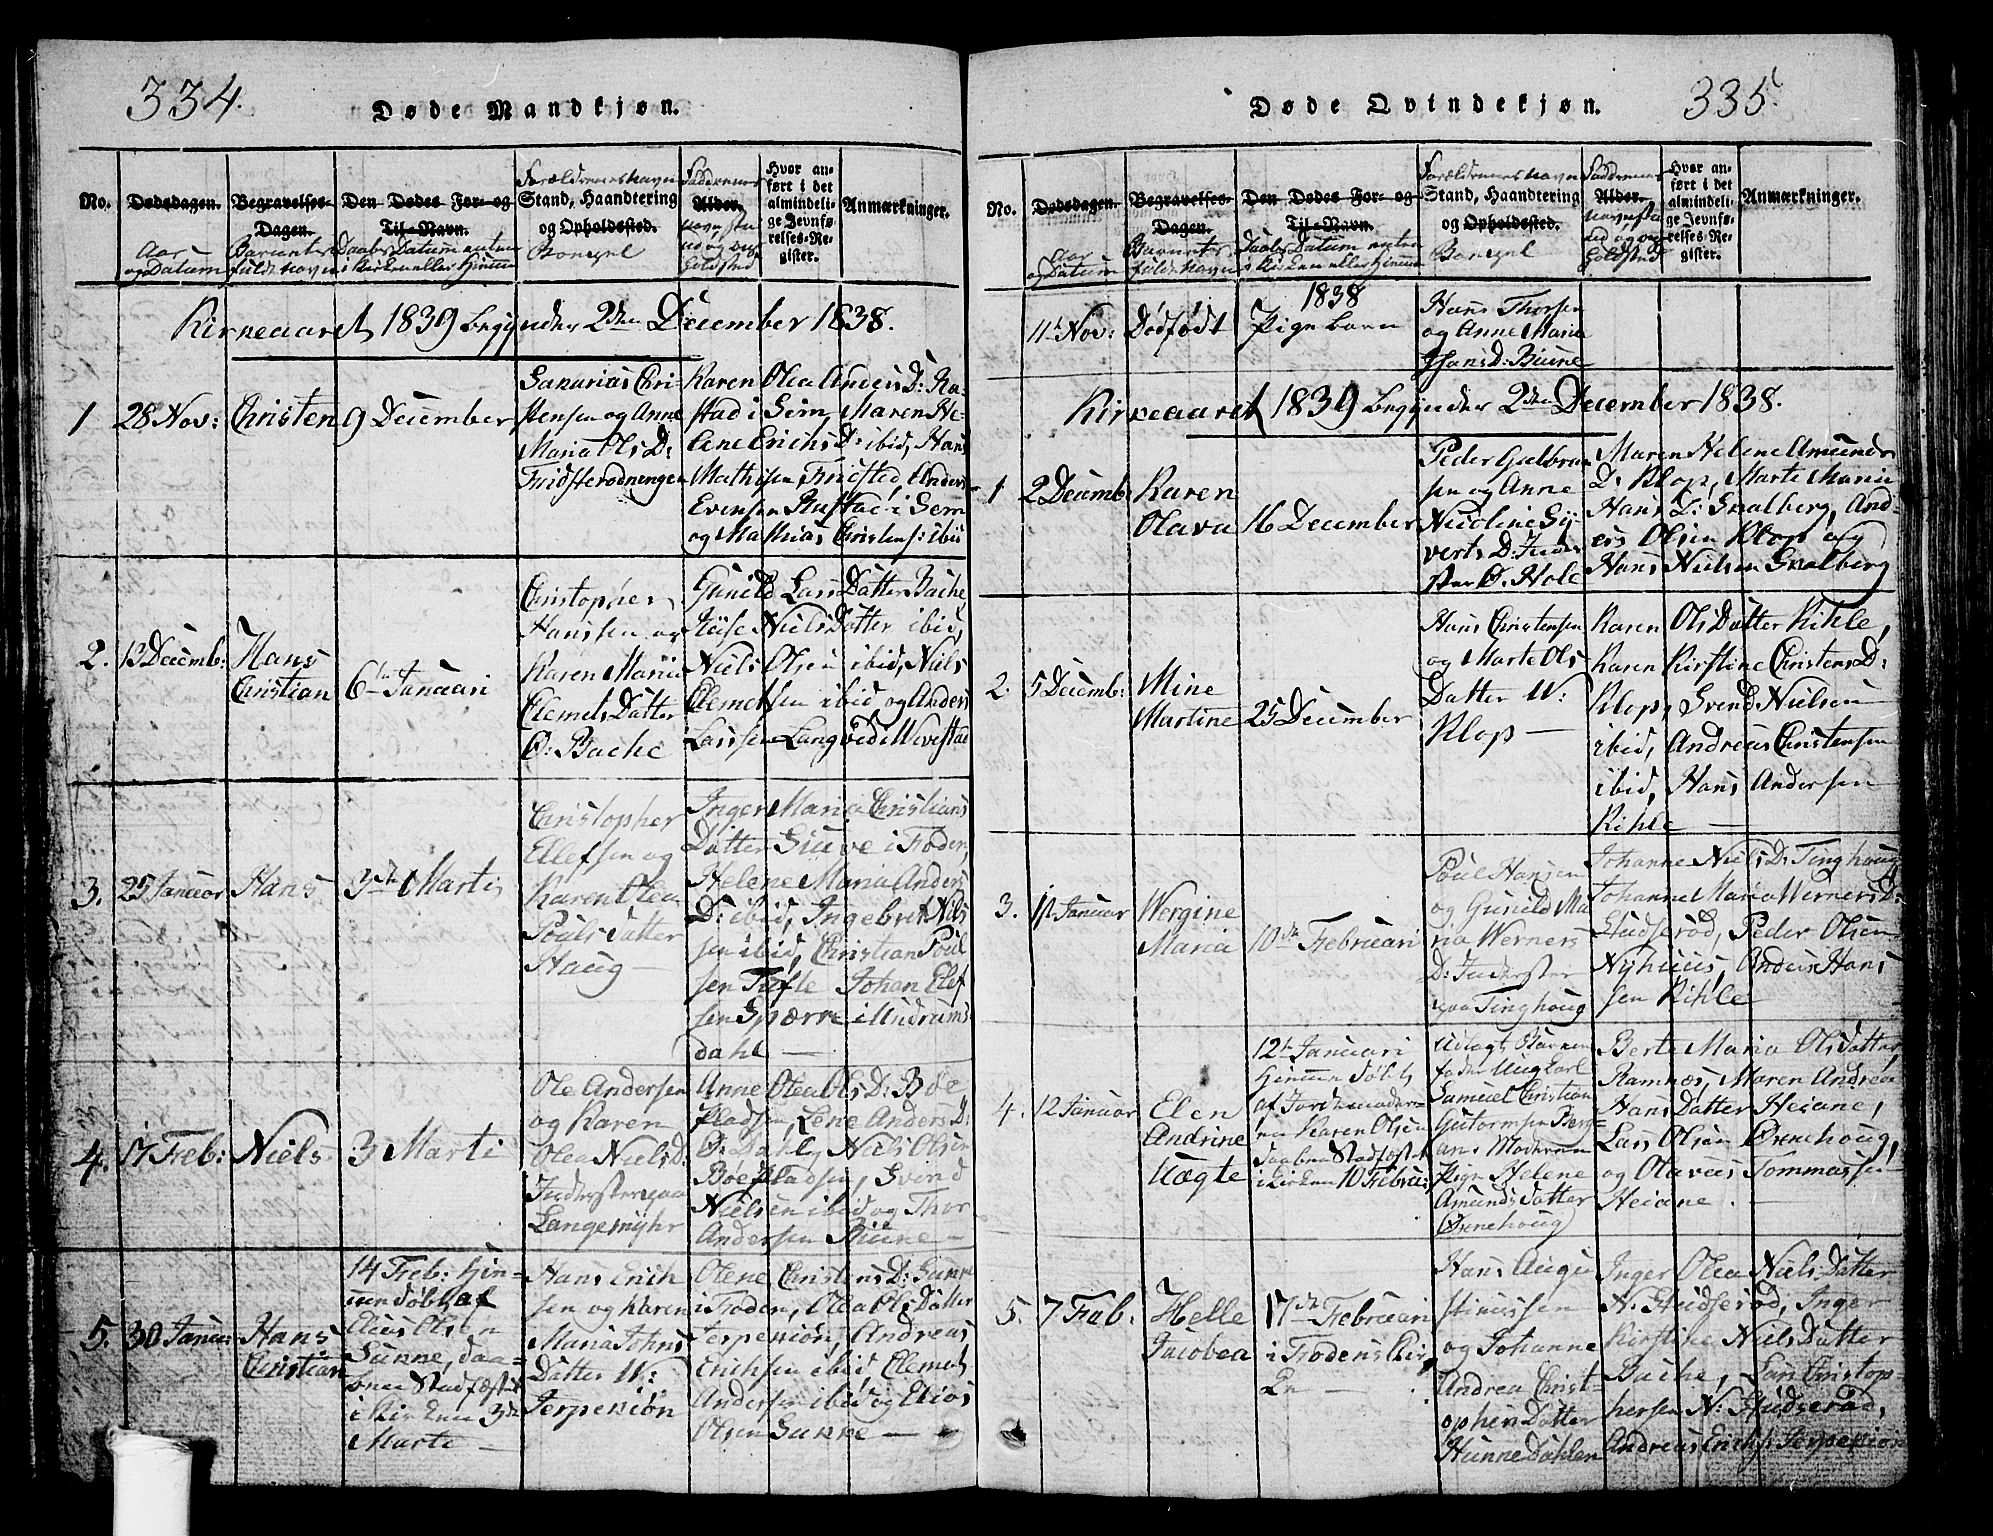 334.
Døde Mandkjøn.
No.
Dødsdagen.
Aar
og Datum
Begravelses-
Dagen.
Barnetes
fulde Navn
Den Dødes For- og
Til-Navn.
Daabs Datum enten
i Kirken eller Hiemme
Forældrenes Navn
Stand, Haandtering
og Opholdssted.
Boepæl
Faddrenes
Alder.
Navn, Stand
og Op-
holdsted
Hvor an-
ført i det
almindeli-
ge Jevnfø-
relses-Re-
gister.
Anmærkninger.
Kirkeaaret 1839 begynder 2den December 1838.
1
28 Nov:
Christen
9 December
Sakarias Chri-
stensen og Anne
Maria Ols D:
Fridsterødningen
Karen Olea Anders D: Ra-
stad i Sem, Maren He-
lene Erichs D: ibid, Hans
Mathisen Fridsted, Anders
Evensen Rustad i Sem
og Mathias Christens: ibid
2.
13 Decemb:
Hans
Christian
6te Januari
Christopher
Hanssen og
Karen Maria
Clemets Datter
Ø: Bache
Gunild Lars Datter Bache
Niels Datter ibid,
Niels Olsen ibid, Niels
Clemetsen ibid og Anders
Larssen Langved i Wivestad
3.
25 Januar
Hans
3die Marti
Christopher
Ellefsen og
Karen Olea
Pouls Datter
Haug
Inger Maria Christians
Datter i Froden,
Helene Maria Anders
D: ibid, Ingebret Niels
sen ibid, Christian Poul
sen Trøfle Johan Elef
sen Sperre i Undrums
dahl
4.
17 Feb:
Niels
3 Marti
Ole Andersen
og Karen
Olea Niels D:
Inderster paa
Langemyhr
Anne Olea Ols D: Bøe
pladsen, Lene Anders D:
Ø. Dahl, Niels Olsen
Bøepladsen, Svend
Nielsen ibid og Thor
Andersen Biune
5.
30 Januar:
Hans
Christian
14 Feb: Hie-
mme døbt af
Elias Olsen
Sunne, daa-
ben Stadfæstet
i Kirken 3die
Marti
Hans Erich
sen og Karen
Maria Johns
Datter W:
Jerpekiøn
Olene Christens D: Sunne
i Froden, Olea Ols Datter
Jerpekiøn, Andreas
Erichsen ibid, Clemet
Andersen ibid og Elias
Olsen Sunne
Døde Qvindekjøn.
335.
No.
Dødsdagen.
Aar
og Datum
Begravelses-
Dagen.
Barnetes
fulde Navn
Den Dødes For- og
Til-Navn.
Daabs Datum enten
i Kirken eller Hiemme
Forældrenes Navn
Stand, Haandtering
og Opholdssted.
Boepæl
Faddrenes
Alder.
Navn, Stand
og Op-
holdsted
Hvor an-
ført i det
almindeli-
ge Jevnfø-
relses-Re-
gister.
Anmærkninger.
11te Nov:
Dødfødt
1838
Pige barn
Hans Thorsen
og Anne Maria
Hans D: Biune
Kirkeaaret 1839 begynder 2den December 1838.
1
2 Decemb:
Karen
Olava
16 December
Peder Gulbran
sen og Anne
Nicoline Sy-
verts D: Inder
ster Ø. Hole
Maren Helene Amunds
D: Klop, Marte Maria
Hans D: Snalberg, And-
ers Olsen Klop og
Hans Nielsen Snalberg
2.
5 Decemb:
Mine
Martine
25 December
Hans Christensen
og Marte Ols
Datter W:
Klop
Karen Ols Datter Kihle,
Karen Kirstine Christens D:
Klop, Svend Nielsen
ibid, Andreas Christensen
ibid, Hans Andersen
Kihle
3.
1ste Januar
Wergine
Maria
10de Februari
Poul Hansen
og Gunild Ma
ria Werners
D: Inderster
paa Tinghoug
Johanne Niels D: Tinghoug
Johanne Maria Werners D:
Hudserød, Peder Olsen
Nyhuus, Anders Hans
sen Kihle
4.
12 Januar
Elen
Andrine
Uægte
12te Januari
Hiemme døbt
af Jordemoder-
en Karen Olsen
Daaben Stadfæstet
i Kirken 10 Februa:
Udlagt Barne
fader Ung Carl
Samuel Christian
Gutormsen Ber-
an: Moderen
Pige Helene
Amunds Datter
Ørnehoug
Berte Maria Ols Datter
Ramnæs, Maren Andrea
Hans Datter Heiane,
Lars Olsen Ørnehoug,
og Olavus Tommassen
Heiane.
5.
7 Feb:
Helle
Jacobea
17de Februari
i Frodens Kir
ke
Hans Augu
stinussen
og Johanne
Andrea Christ-
opher Datter
Hunnedahlen
Inger Olea Niels Datter
N: Hudserød, Inger
Kirstine Niels Datter
Bache, Christop
hersen N: Hudserød,
Andreas Erichs: Jerpekiøn